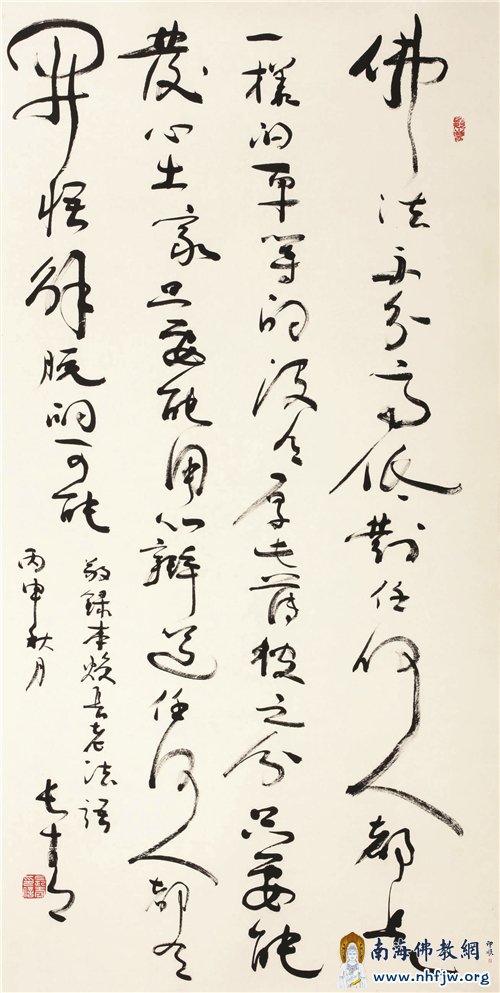 佛法不分高低對任何人都是
一樣的平等的没有厚此薄彼之分只要能
發心出家只要能用心辦道任何人都有
開悟解脱的可能
敬録本焕長老法語
丙申秋月
南海佛教網
www.nhfjw.org